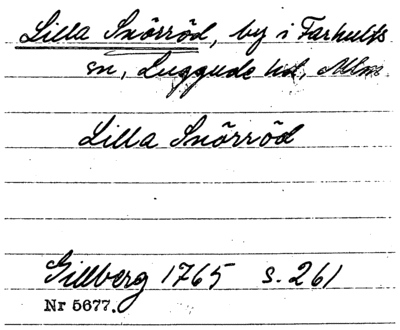 Lilla Snörröd, by i Farhults
sn, Luggude hd, Mlm
Lilla Snörröd
Gillberg 1765 s. 261
Nr 5677.